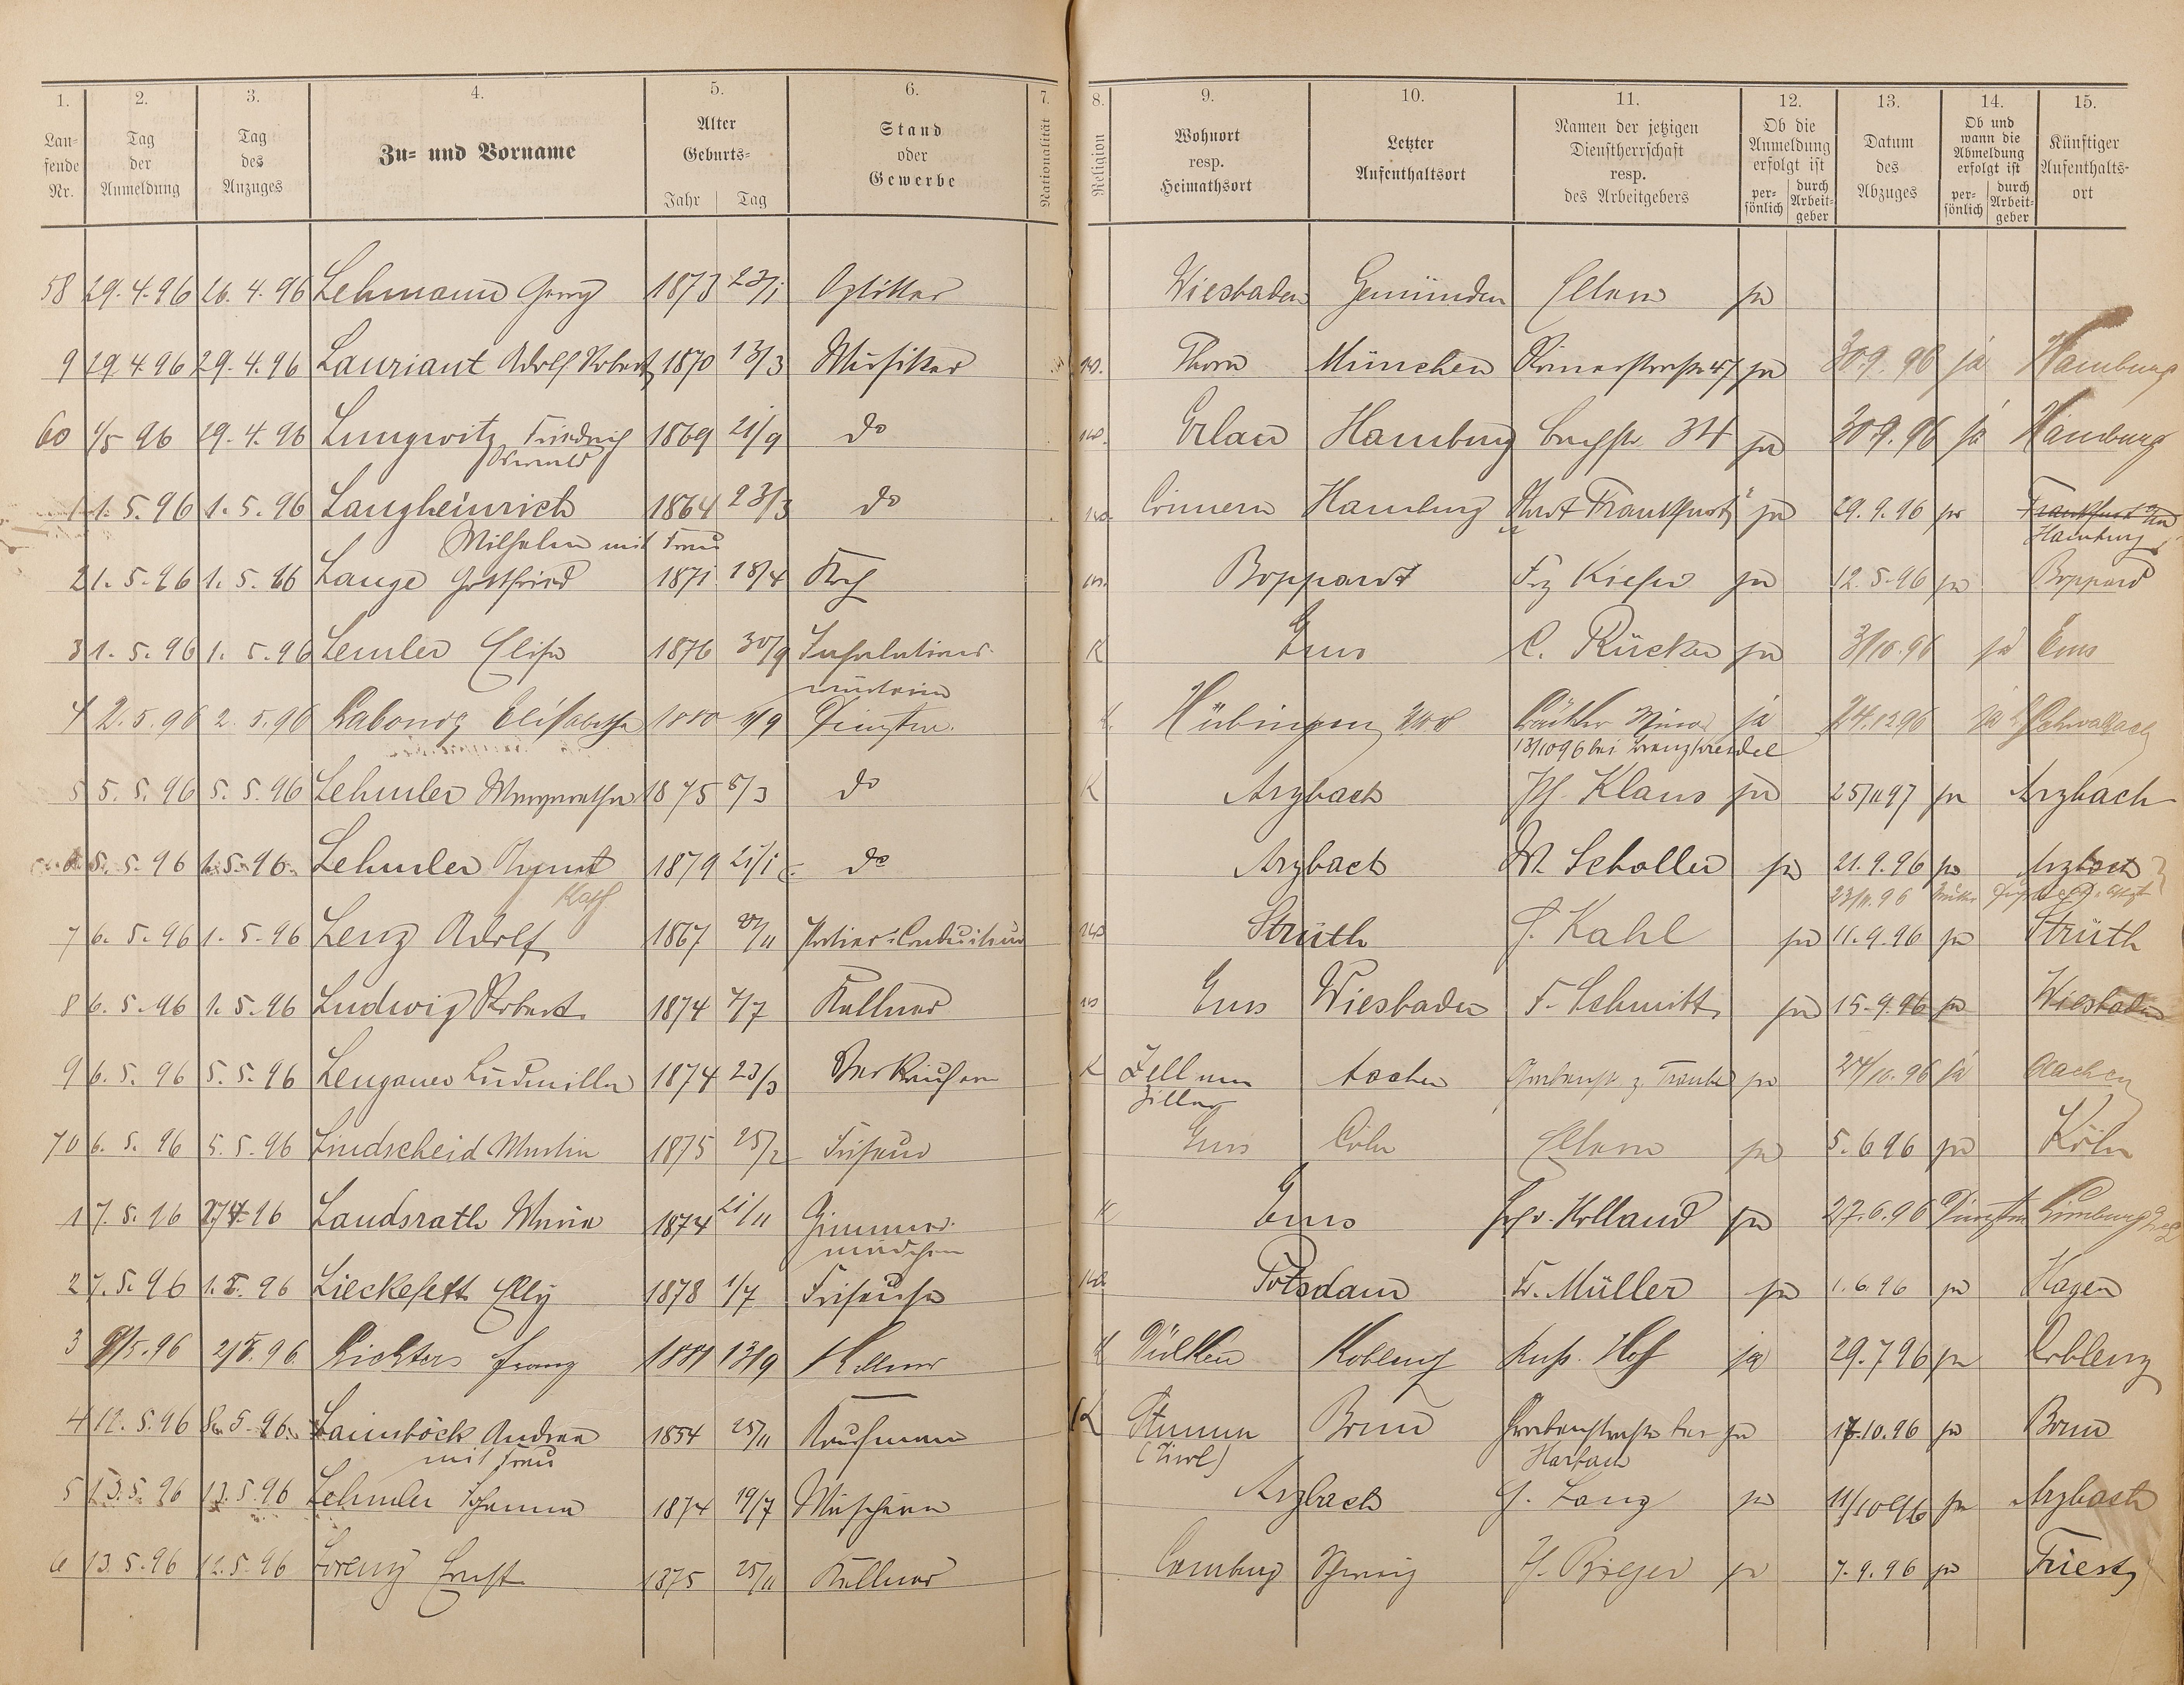 1. 2. 3. 4. 5. 6. 7. 8. 9. 10. 11. 12. 13. 14. 15.
Lau-
fende
Nr.
Tag
der
Anmeldung
Tag
des
Anzuges
Zu- und Vorname
Alter
Geburts-
Jahr Tag
Stand
oder
Gewerbe
Nationalität
Religion
Wohnort
resp.
Heimathsort
Letzter
Aufenthaltsort
Namen der jetzigen
Dienstherrschaft
resp.
des Arbeitgebers
Ob die
Anmeldung
erfolgt ist
per-
sönlich
durch
Arbeit-
geber
Datum
des
Abzuges
Ob und
wann die
Abmeldung
erfolgt ist
per-
sönlich
durch
Arbeit-
geber
Künftiger
Aufenthalts-
ort
58 29.4.96 26.4.96 Lehmann Georg 1873 23/1 Optiker Wiesbaden Gemünden Eltern ja
9 29.4.96 29.4.96 Lauriant Adolf Robert 1870 13/3 Musiker Thorn München Römerstrasse 47 ja 30.9.96 ja Hamburg
60 1/5 96 29.4.96 Lungwitz Friedrich 1869 21/9 do Erlau Hamburg Burgstr. 34 ja 30.9.96 ja Hamburg
Oswald
1 1.5.96 1.5.96 Langheinrich 1864 23/3 do Hamburg Stadt Frankfurt ja 29.9.96 ja Frankfurt
Wilhelm mit Frau Hamburg
2 1.5.96 1.5.96 Lange Gottfried 1871 18/4 Koch Boppardt Frz Kiefer ja 12.5.96 ja Boppard
3 1.5.96 1.5.96 Lemler Elise 1876 30/9 Inhalations- K Ems C. Rücker ja 3/10.96 ja Ems
wärterin
4 2.5.96 2.5.96 Labonig Elisabetha 1880 11/9 Dienstm. Hübingen ja 24.12.96 ja Schwalbach
13/10 96 bei
5 5.5.96 5.5.96 Lehmler Margaretha 1875 8/3 do K Arzbach Ph. Klaus ja 25/11 97 ja Arzbach
6 5.5.96 1.5.96 Lehmler August 1879 21/1 do Arzbach W. Scholler ja 21.9.96 ja Arzbach
Kath 23/11.96
7 6.5.96 1.5.96 Lenz Adolf 1867 /11 Portier-Conducteur Strüth J. Kahl ja 11.9.96 ja Strüth
8 6.5.96 1.5.96 Ludwig Robert 1874 7/7 Kellner Ems Wiesbaden F. Schmitt ja 15.9.96 ja Wiesbaden
9 6.5.96 5.5.96 Lengauer Ludmilla 1874 23/3 Verkäuferin K Zell am Aachen z. Traube ja 24/10.96 ja Aachen
Ziller
70 6.5.96 5.5.96 Lindscheid Martin 1875 25/2 Friseur Ems Cöln Eltern ja 5.6 96 ja Köln
1 7.5.96 27.4.96 Landsrath Maria 1874 21/11 Zimmer- K Ems v. Holland ja 27.6.96 Limburg
mädchen
2 7.5.96 1.5.96 Lieckefett Elly 1878 1/7 Friseuse Potsdam Fr. Müller ja 1.6.96 ja Hagen
3 9/5.96 2/5.96 Lichters Franz 1881 13/9 Kellner K Dülken Koblenz Russ. Hof ja 29.7 96 ja Coblenz
4 12.5.96 8.5.96 Laimböck Andreas 1854 25/11 Kaufmann K Stumm Bonn Grabenstrasse bei ja 17.10.96 ja Bonn
mit Frau (Tirol) Harbach
5 13.5.96 13.5.96 Lehmler Johanna 1874 19/7 Wäscherin Arzbach J. Lang ja 11/10 96 ja Arzbach
6 13.5.96 12.5.96 Lorenz Ernst 1875 25/11 Kellner Camburg H. Brieger ja 7.9.96 ja Triest